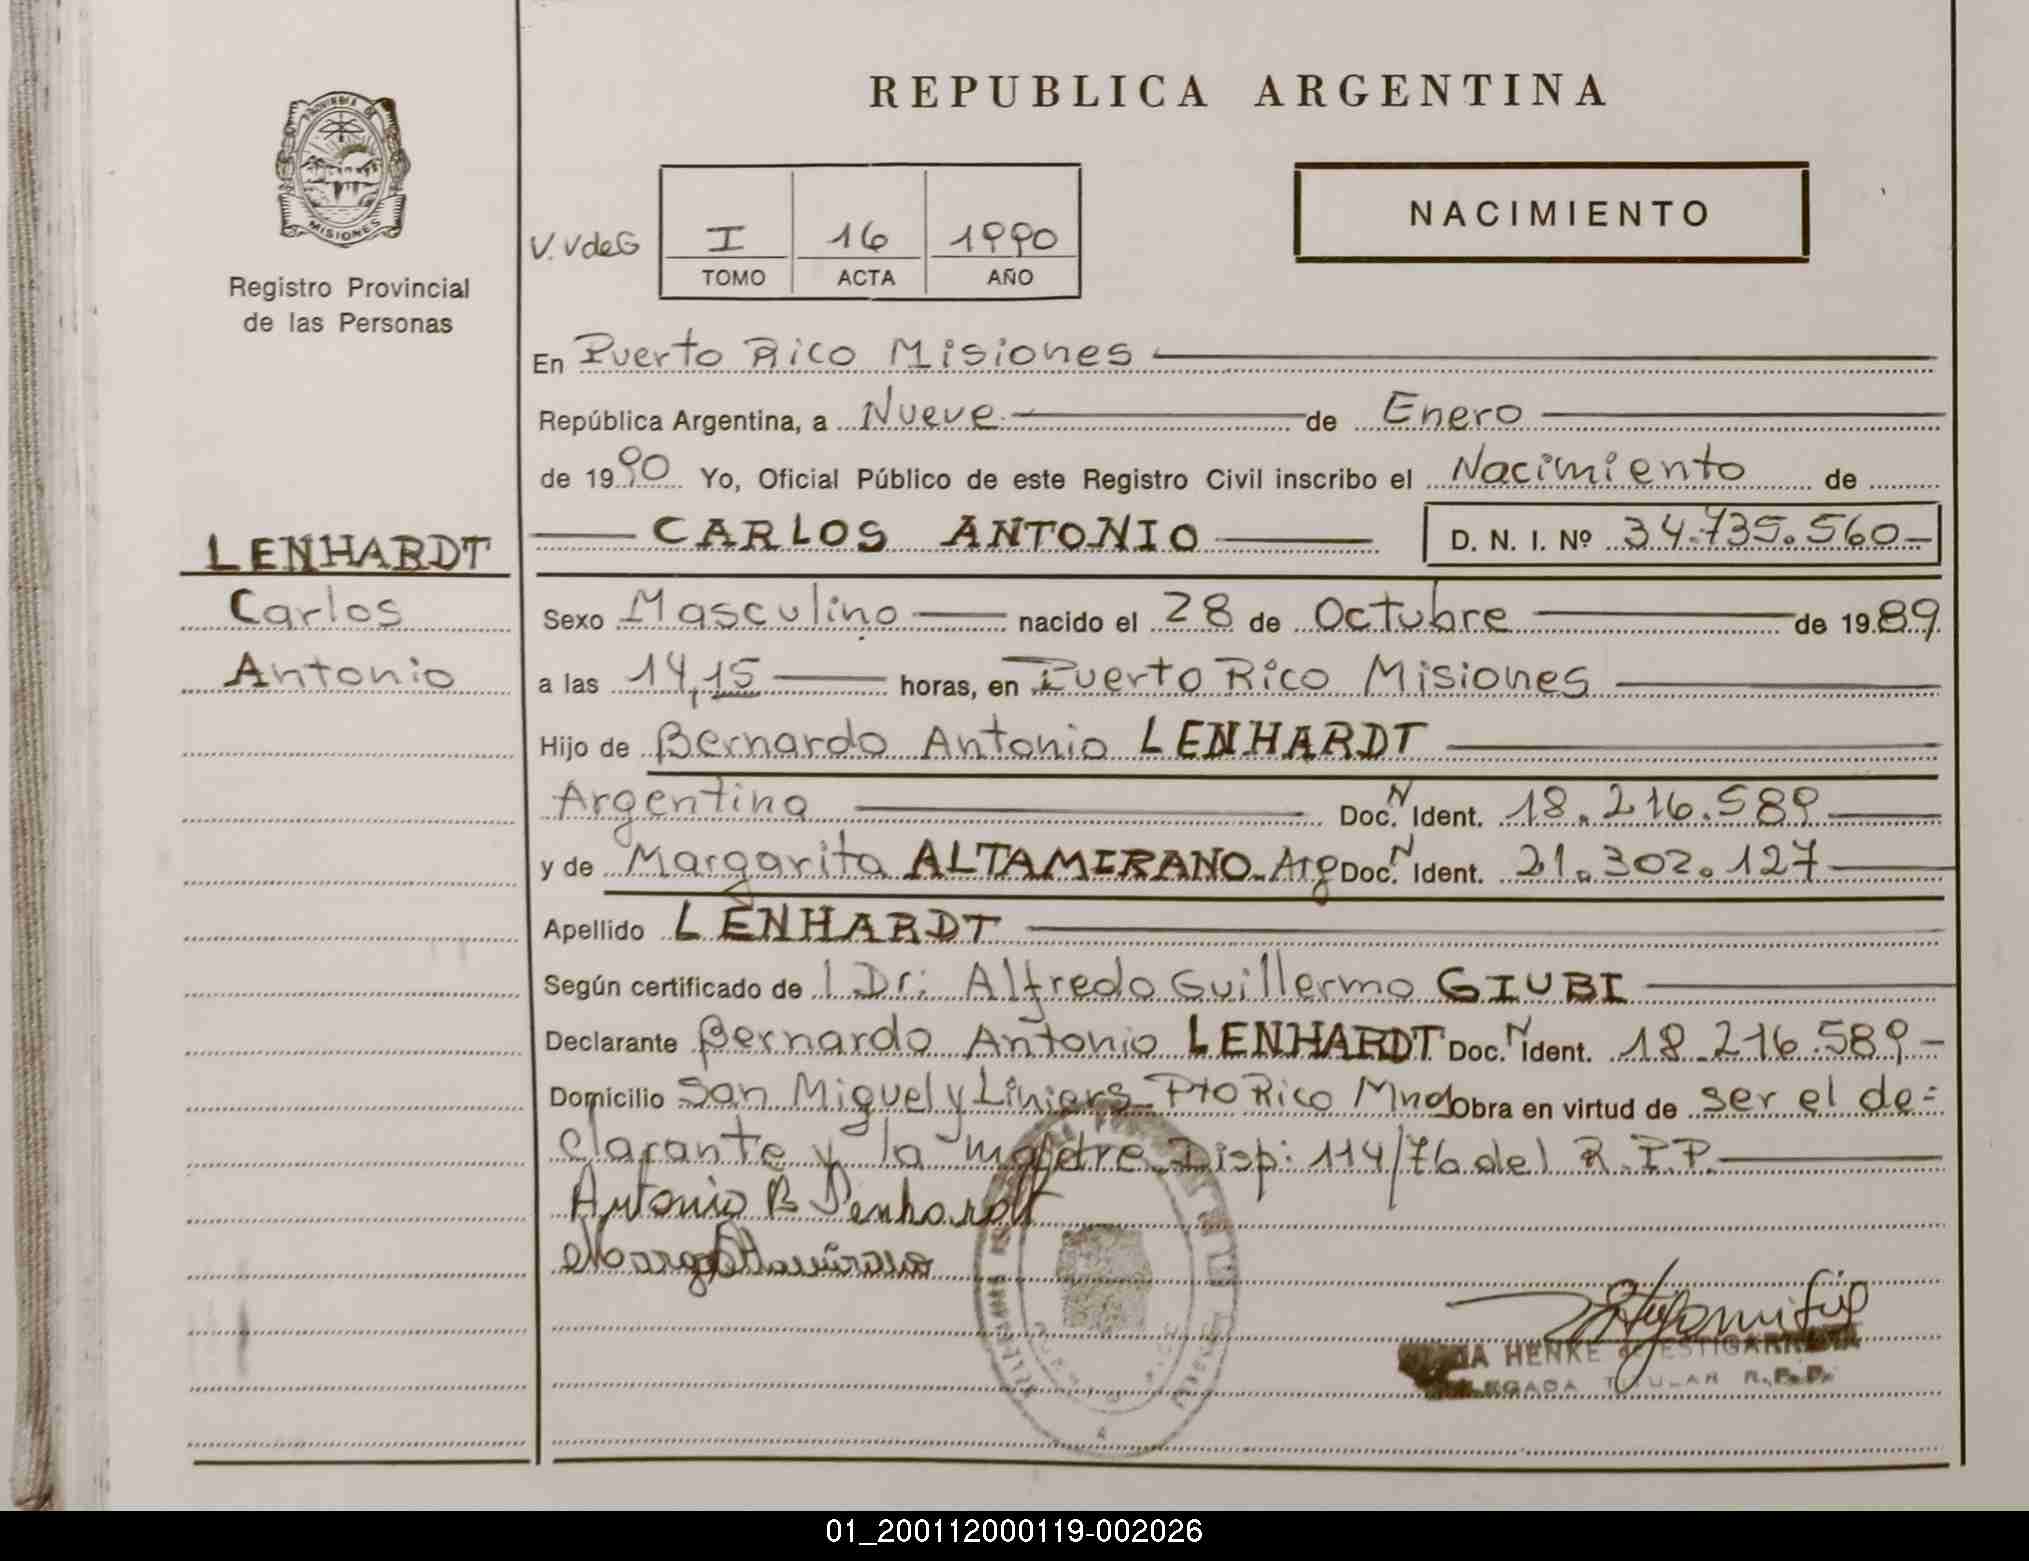 REPUBLICA ARGENTINA
PROVINCIA DE
MISIONES
Registro Provincial
de las Personas
V.VdeG
I 16 1990
TOMO ACTA AÑO
NACIMIENTO
En Puerto Rico Misiones
República Argentina, a Nueve de Enero
de 1990 Yo, Oficial Público de este Registro Civil inscribo el Nacimiento de
LENHARDT
Carlos
Antonio
CARLOS ANTONIO D. N. I. Nº 34.735.560
Sexo Masculino nacido el 28 de Octubre de 1989
a las 14,15 horas, en Puerto Rico Misiones
Hijo de Bernardo Antonio LENHARDT
Argentina Doc. N Ident. 18.216.589
y de Margarita ALTAMIRANO. Arg Doc. N Ident. 21.302.127
Apellido LENHARDT
Según certificado de l Dr: Alfredo Guillermo GIUBI
Declarante Bernardo Antonio LENHARDT Doc. N Ident. 18.216.589-
Domicilio San Miguel y Liniers Pto Rico Mnes Obra en virtud de ser el de=
clarante y la madre Disp: 114/76 del R.P.P.
Antonio B Lenhardt
HENKE de ESTIGARRIBIA
DELEGADA TITULAR R.P.P.
01_200112000119-002026